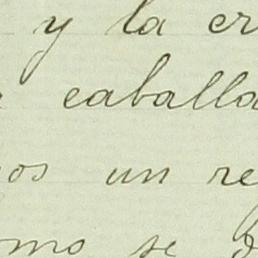 y la cr
caballa
os un re
omo se d